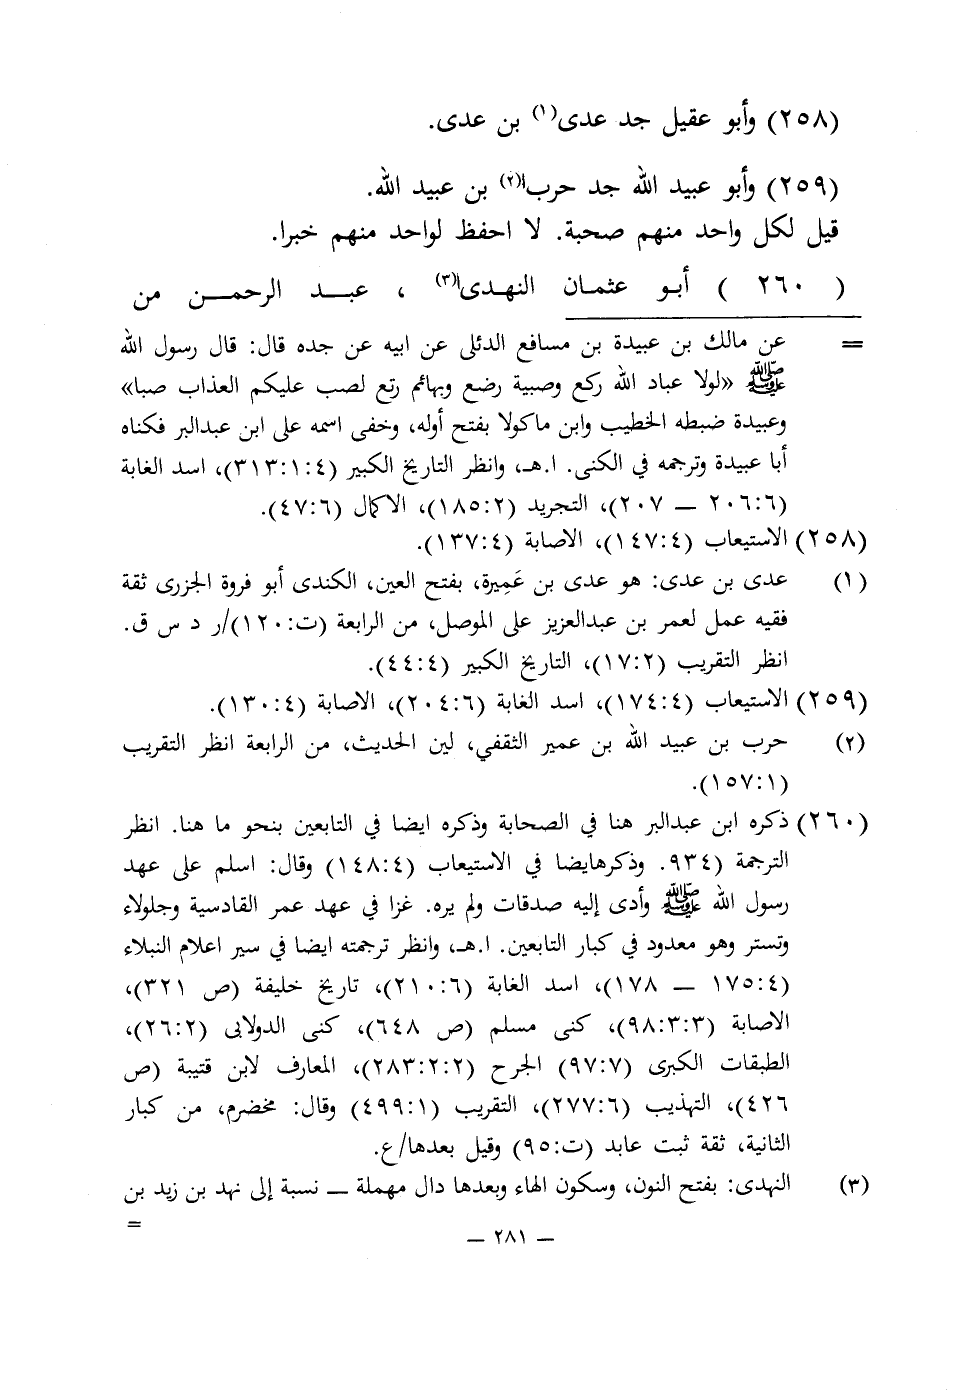 (٢٥٨) وأبو عقيل جد عدى(١) بن عدى.
(٢٥٩) وأبو عبيد الله جد حرب(٢) بن عبيد الله.
قيل لكل واحد منهم صحبة. لا احفظ لواحد منهم خبرا.
(٢٦٠) أبو عثمان النهدى(٣)، عبد الرحمن من
= عن مالك بن عبيدة بن مسافع الدئلى عن ابيه عن جده قال: قال رسول الله
ﷺ «لولا عباد الله ركع وصبية رضع وبهائم رتع لصب عليكم العذاب صبا»
وعبيدة ضبطه الخطيب وابن ماكولا بفتح أوله، وخفى اسمه على ابن عبدالبر فكناه
أبا عبيدة وترجمه في الكنى. ا.هـ، وانظر التاريخ الكبير (٣١٣:١:٤)، اسد الغابة
(٢٠٦:٦ — ٢٠٧)، التجريد (١٨٥:٢)، الاكمال (٤٧:٦).
(٢٥٨) الاستيعاب (١٤٧:٤)، الاصابة (١٣٧:٤).
(١) عدى بن عدى: هو عدى بن عَمِيرة، بفتح العين، الكندى أبو فروة الجزرى ثقة
فقيه عمل لعمر بن عبدالعزيز على الموصل، من الرابعة (ت:١٢٠)/ر د س ق.
انظر التقريب (١٧:٢)، التاريخ الكبير (٤٤:٤).
(٢٥٩) الاستيعاب (١٧٤:٤)، اسد الغابة (٢٠٤:٦)، الاصابة (١٣٠:٤).
(٢) حرب بن عبيد الله بن عمير الثقفي، لين الحديث، من الرابعة انظر التقريب
(١٥٧:١).
(٢٦٠) ذكره ابن عبدالبر هنا في الصحابة وذكره ايضا في التابعين بنحو ما هنا. انظر
الترجمة (٩٣٤. وذكرهايضا في الاستيعاب (١٤٨:٤) وقال: اسلم على عهد
رسول الله ﷺ وأدى إليه صدقات ولم يره. غزا في عهد عمر القادسية وجلولاء
وتستر وهو معدود في كبار التابعين. ا.هـ، وانظر ترجمته ايضا في سير اعلام النبلاء
(١٧٥:٤ — ١٧٨)، اسد الغابة (٢١٠:٦)، تاريخ خليفة (ص ٣٢١)،
الاصابة (٩٨:٣:٣)، كنى مسلم (ص ٦٤٨)، كنى الدولابى (٢٦:٢)،
الطبقات الكبرى (٩٧:٧) الجرح (٢٨٣:٢:٢)، المعارف لابن قتيبة (ص
٤٢٦)، التهذيب (٢٧٧:٦)، التقريب (٤٩٩:١) وقال: مخضرم، من كبار
الثانية، ثقة ثبت عابد (ت:٩٥) وقيل بعدها/ع.
(٣) النهدى: بفتح النون، وسكون الهاء وبعدها دال مهملة — نسبة إلى نهد بن زيد بن
=
— ٢٨١ —